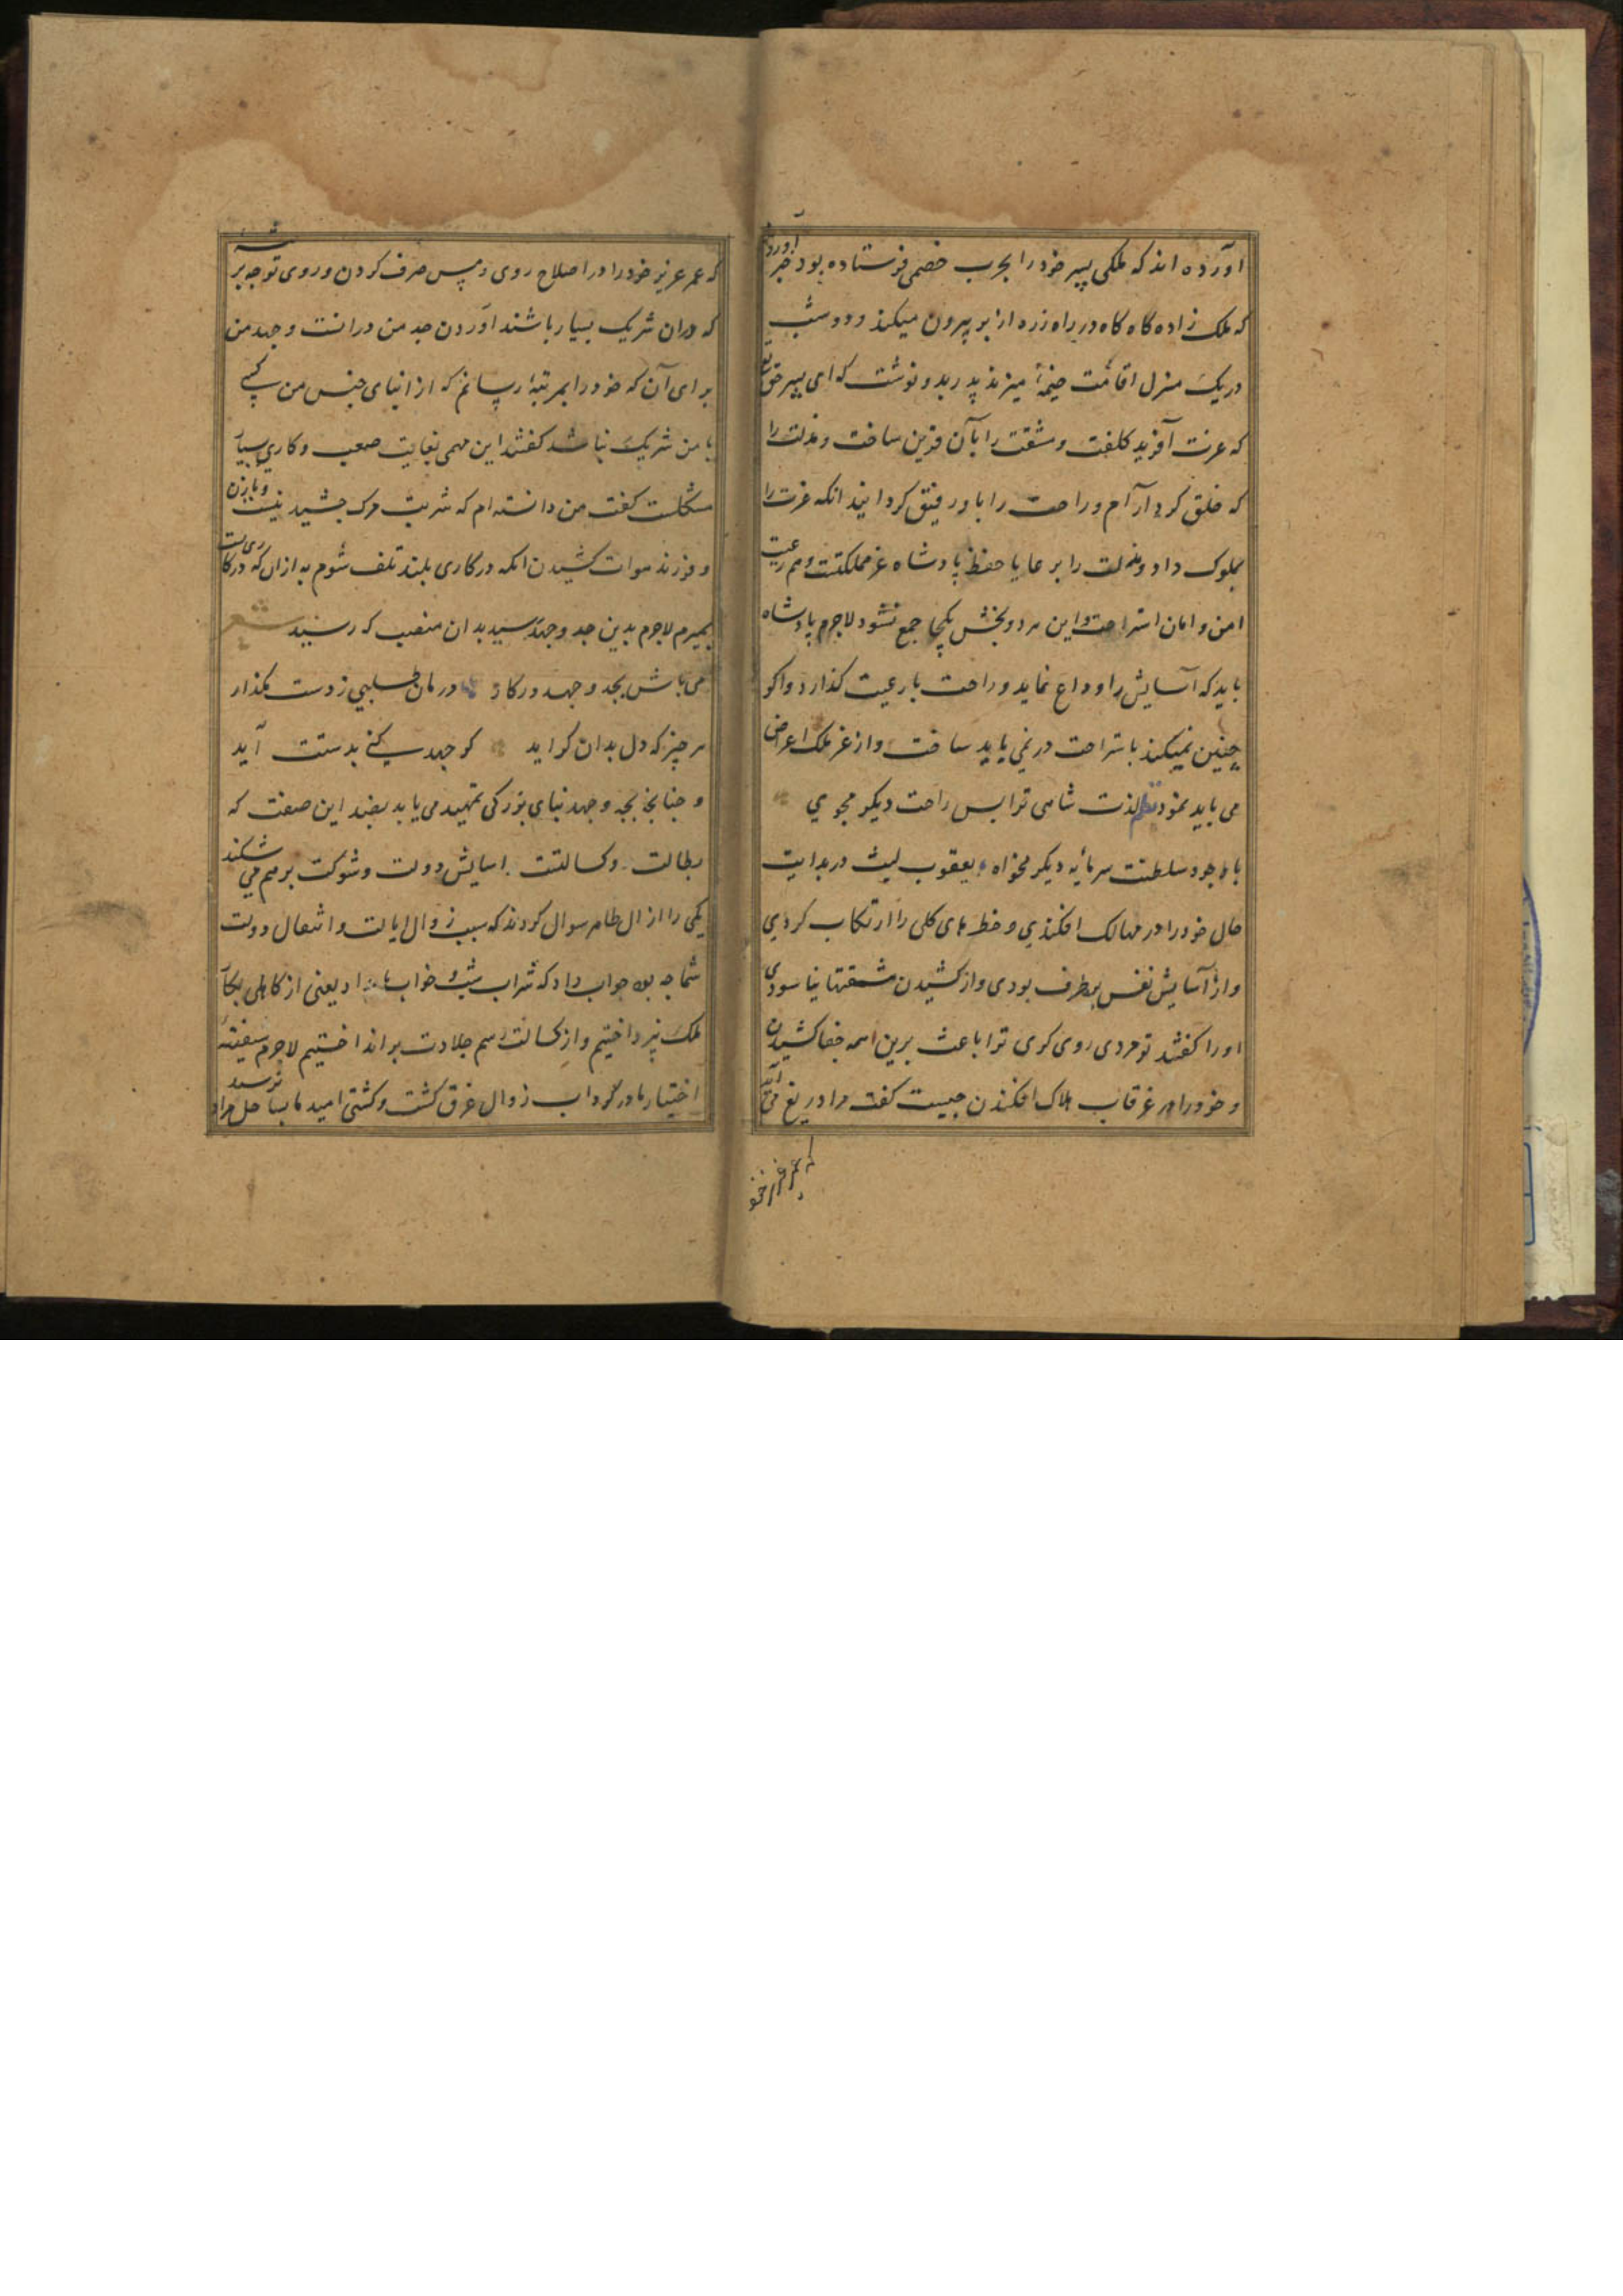 آورده اند که ملکی پسر خود را بحرب خصمی فرستاده بود خبر آوردند
که ملک زاده گاه گاه در راه زره از بر بیرون میکند و دو شب
در یک منزل اقامت خیمه میزند پدر بدو نوشت که ای پسر حق تع
که عزت آفرید کلفت و مشقت را با آن قرین ساخت و مذلت را
که خلق کرد آرام و راحت را با او رفیق گردانید انکه عزت را
بملوک داد و مذلت را برعایا حفظ پادشاه عز مملکتست و هم رعیت
امن و امان استراحت و این هر دو بخش یکجا جمع نشود لاجرم پادشاه
باید که آسایش را وداع نماید و راحت با رعیت گذارد و اگر
چنین نمیکند باستراحت در نمی باید ساخت و از عز ملک اعراض
می باید نمود نظم لذت شاهی ترا بس راحت دیگر مجوی
با وجود سلطنت سرمایه دیگر مخواه یعقوب لیث در بدایت
حال خود را در مهالک افکندی و خطرهای کلی را ارتکاب کردی
و از آسایش نفس بر طرف بودی و از کشیدن مشقتها نیاسودی
او را گفتند تو مردی روی گری ترا باعث برین همه جفا کشیدن
و خود را در غرقاب هلاک افکندن چیست گفت مرا دریغ می آید
که عمر عزیز خو
که عمر عزیز خود را در اصلاح روی و مس صرف کردن و روی توجه بر
که دران شریک بسیار باشند آوردن جد من درانست و جهد من
برای آن که خود را بمرتبه رسانم که از ابنای جنس من کسی
با من شریک نباشد گفتند این مهمی بغایت صعب و کاری بسیار
مشکلست گفت من دانسته ام که شربت مرگ چشیدنیست و بار زن
و فرزند کشیدن انکه در کاری بلند تلف شوم به ازان که در کار
بمیرم لاجرم بدین جد و جهد رسید بدان منصب که رسید شعر
می باش بجد و جهد در کار دامان طلبی ز دست مگذار
هر چیز که دل بدان گراید گر جهد کنی بدستت آید
و چنانچه بجد و جهد بنای بزرگی تمهید می یابد بضد این صفت که
بطالت و کسالتست اسایش دولت و شوکت بر هم می شکند
یکی را از ال طاهر سوال کردند که سبب زوال ایالت و انتقال دولت
شما چه بود جواب داد که شراب شب و خواب بامداد یعنی از کاهلی بکار
ملک نپرداختیم و از کسالت رسم جلادت بر انداختیم لاجرم سفینه
اختیار ما در گرداب زوال غرق گشت و کشتی امید ما بساحل مراد نرسید